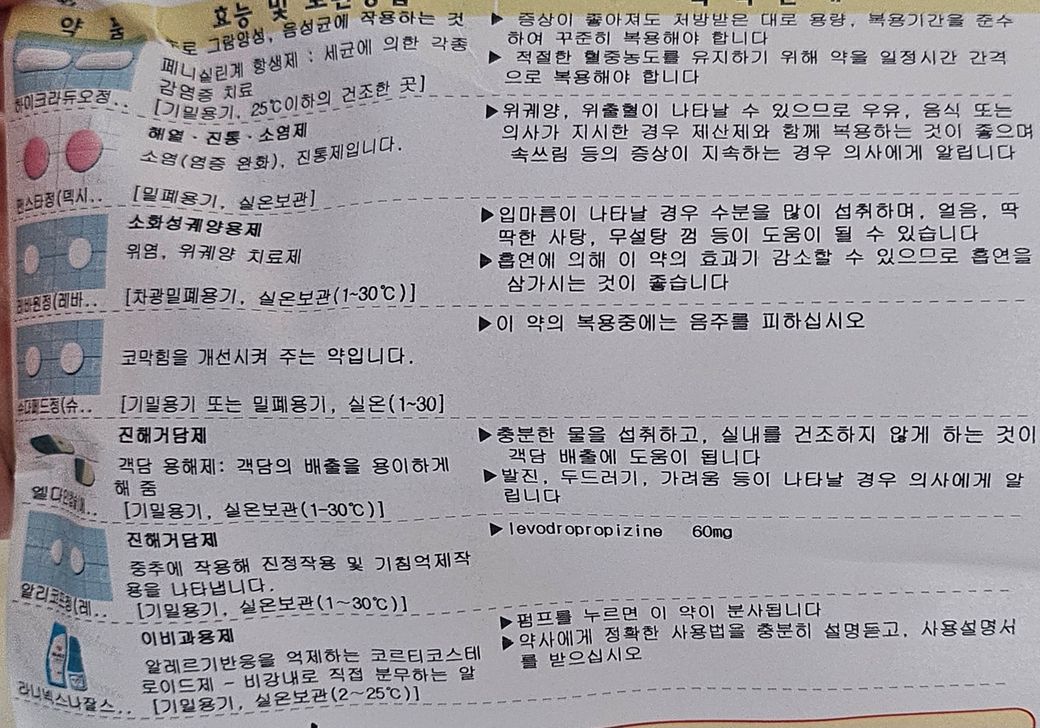 약 품
효능 및 보관방법
주로 그람양성, 음성균에 작용하는 것
페니실린계 항생제 : 세균에 의한 각종
감염증 치료
하이크라듀오정..
[기밀용기, 25℃이하의 건조한 곳]
▶ 증상이 좋아져도 처방받은 대로 용량, 복용기간을 준수
하여 꾸준히 복용해야 합니다
▶ 적절한 혈중농도를 유지하기 위해 약을 일정시간 간격
으로 복용해야 합니다
해열·진통·소염제
소염(염증 완화), 진통제입니다.
펜스타정(덱시..
[밀폐용기, 실온보관]
▶위궤양, 위출혈이 나타날 수 있으므로 우유, 음식 또는
의사가 지시한 경우 제산제와 함께 복용하는 것이 좋으며
속쓰림 등의 증상이 지속하는 경우 의사에게 알립니다
소화성궤양용제
위염, 위궤양 치료제
레바원정(레바..
[차광밀폐용기, 실온보관(1~30℃)]
▶입마름이 나타날 경우 수분을 많이 섭취하며, 얼음, 딱
딱한 사탕, 무설탕 껌 등이 도움이 될 수 있습니다
▶흡연에 의해 이 약의 효과가 감소할 수 있으므로 흡연을
삼가시는 것이 좋습니다
코막힘을 개선시켜 주는 약입니다.
슈다페드정(슈..
[기밀용기 또는 밀폐용기, 실온(1~30]
▶이 약의 복용중에는 음주를 피하십시오
진해거담제
객담 용해제: 객담의 배출을 용이하게
해 줌
[기밀용기, 실온보관(1-30℃)]
▶충분한 물을 섭취하고, 실내를 건조하지 않게 하는 것이
객담 배출에 도움이 됩니다
▶발진, 두드러기, 가려움 등이 나타날 경우 의사에게 알
립니다
진해거담제
중추에 작용해 진정작용 및 기침억제작
용을 나타냅니다.
알리코프정(레..
[기밀용기, 실온보관(1~30℃)]
▶levodropropizine 60mg
이비과용제
알레르기반응을 억제하는 코르티코스테
로이드제 - 비강내로 직접 분무하는 알
라니넥스나잘스..
[기밀용기, 실온보관(2~25℃)]
▶펌프를 누르면 이 약이 분사됩니다
▶약사에게 정확한 사용법을 충분히 설명듣고, 사용설명서
를 받으십시오